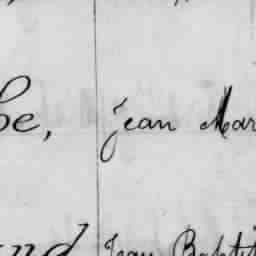 be, Jean Mar
and Jean Baptit